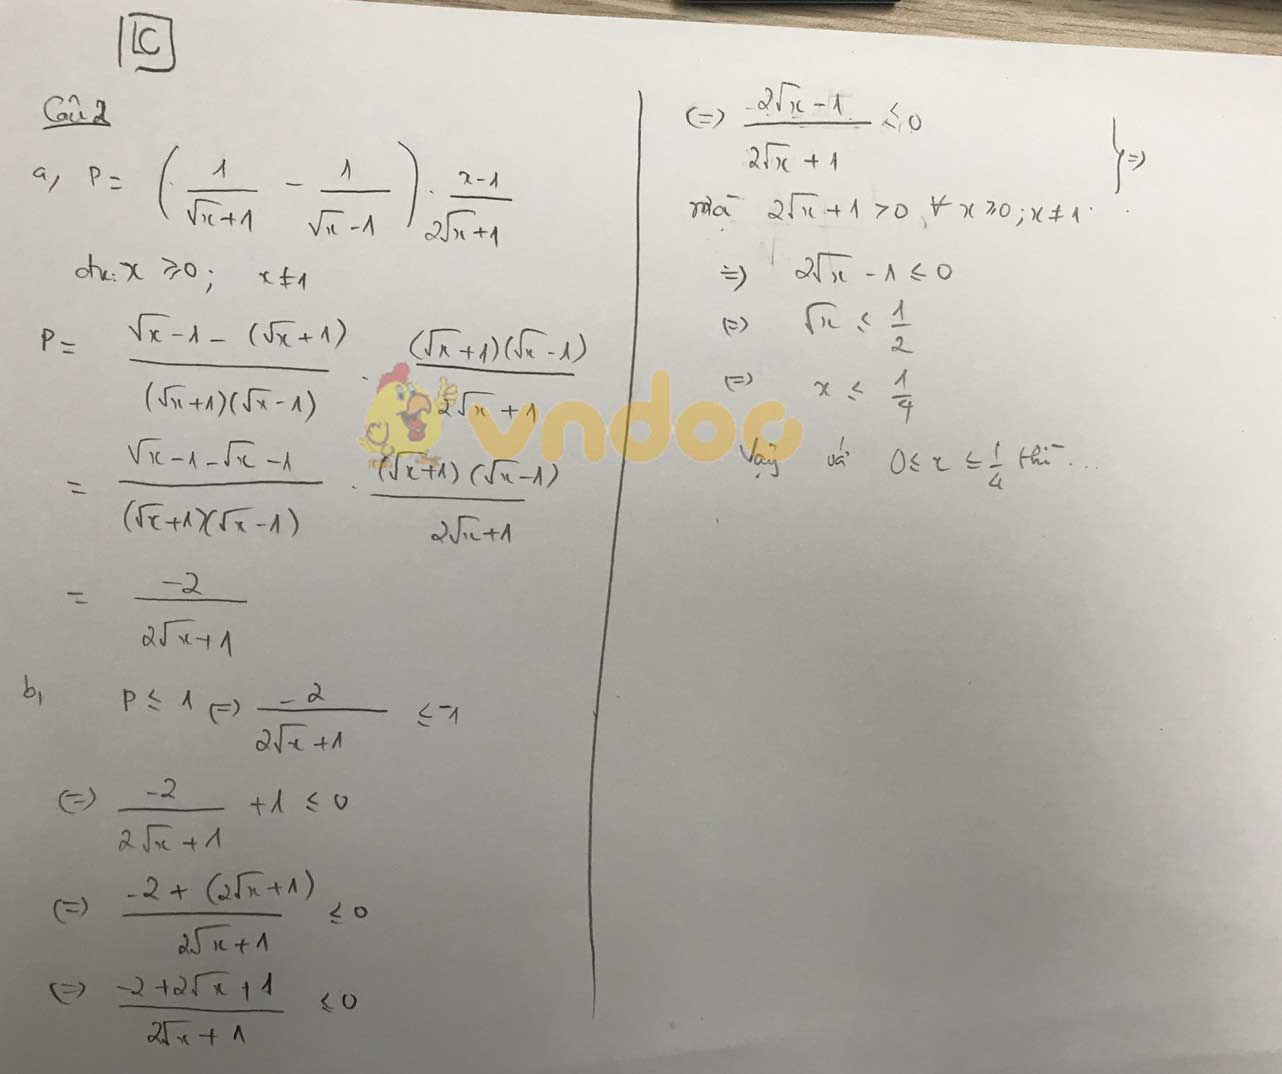 LC
Câu 2
a, P = (1/(√x+1) − 1/(√x−1)) · (x−1)/(2√x+1)
đk: x ≥ 0; x ≠ 1
P = (√x−1−(√x+1))/((√x+1)(√x−1)) · ((√x+1)(√x−1))/(2√x+1)
= (√x−1−√x−1)/((√x+1)(√x−1)) · ((√x+1)(√x−1))/(2√x+1)
= −2/(2√x+1)
b, P ≤ 1 (=) −2/(2√x+1) ≤ −1
(=) −2/(2√x+1) + 1 ≤ 0
(=) (−2+(2√x+1))/(2√x+1) ≤ 0
(=) (−2+2√x+1)/(2√x+1) ≤ 0
(=) (2√x−1)/(2√x+1) ≤ 0
mà 2√x+1 > 0 ∀ x ≥ 0; x ≠ 1 } =)
=) 2√x − 1 ≤ 0
(=) √x ≤ 1/2
(=) x ≤ 1/4
Vậy vá 0 ≤ x ≤ 1/4 thì ...
vndoc